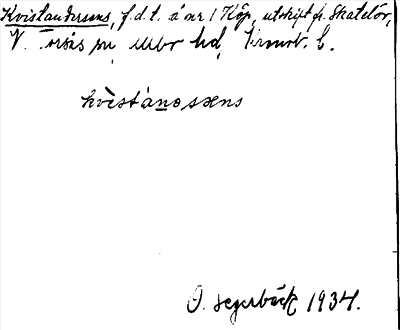 Kvistanderssons, f.d.t. å nr 1 Köp, utskift fr. Skatelöv,
V. Torsås sn Allbo hd, Kronob. l.
kvɩ̀stánəsæns
O. Segerbäck 1934.